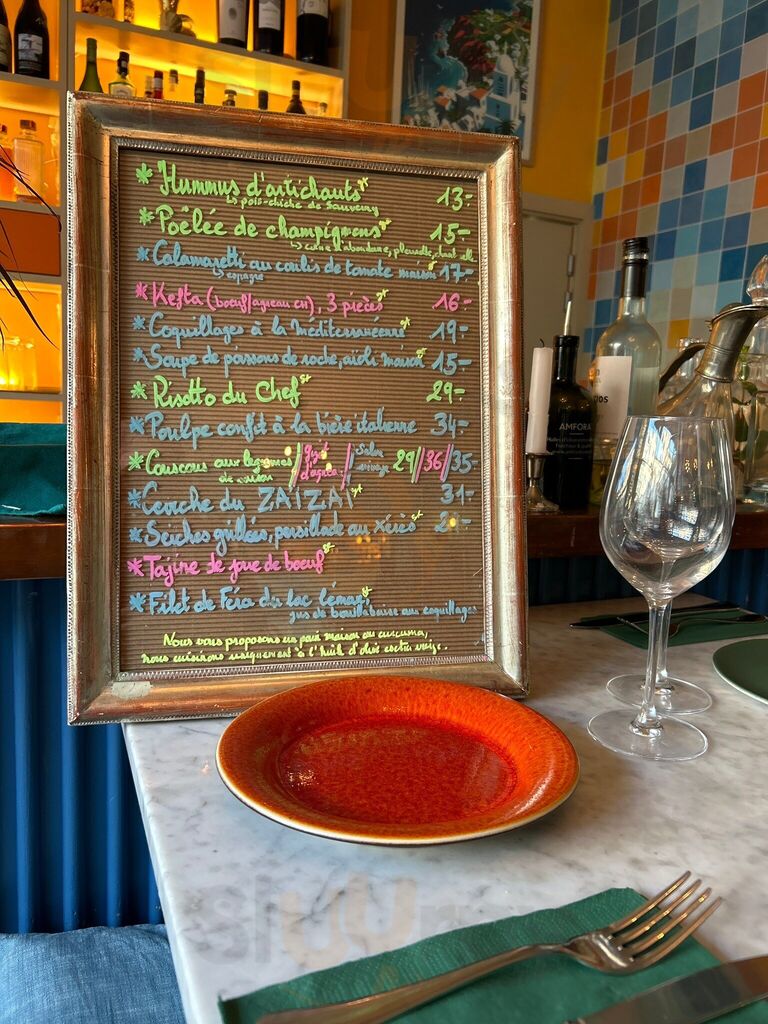 * Hummus d'artichauts 13.-
↳ pois-chiche de
* Poêlée de champignons 15.-
↳ corne d'abondance, pleurotte,
* Calamaretti au coulis de tomate maison 17.-
↳ espagne
* Kefta (boeuf/agneau CH), 3 pièces 16.-
* Coquillages à la méditerranéenne 19-
* Soupe de poissons de roche, aïoli maison 15.-
* Risotto du Chef 29.-
* Poulpe confit à la bière italienne 34-
* Couscous aux légumes / gigot d'agneau / 29/36/35-
de saison
* Cloche du ZAÏZAÏ 31-
* Seiches grillées, persillade au Xérès
* Tajine de joue de boeuf
* Filet de Féra du lac Léman,
jus de bouillabaisse aux coquillages
Nous vous proposons un pain maison au curcuma,
nous cuisinons uniquement à l'huile d'olive extra vierge.
AMFORA